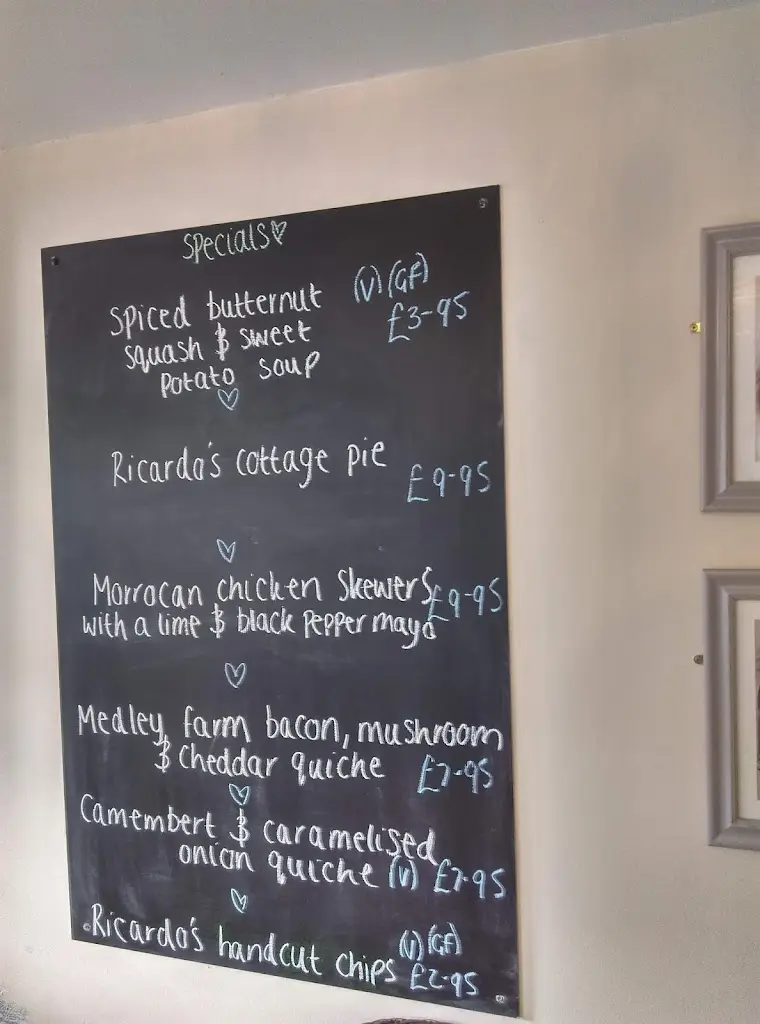 Specials
Spiced butternut (V) (GF)
squash & sweet £3-95
Potato soup
Ricardo's cottage pie £9-95
Morrocan chicken skewers £9-95
with a lime & black pepper mayo
Medley farm bacon, mushroom
& cheddar quiche £7-95
Camembert & caramelised
onion quiche (V) £7-95
Ricardo's handcut chips (V) (GF)
£2-95